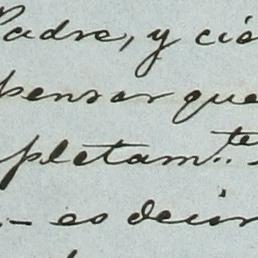 Padre, y cie
pensar que
pletam.te
.- es decir